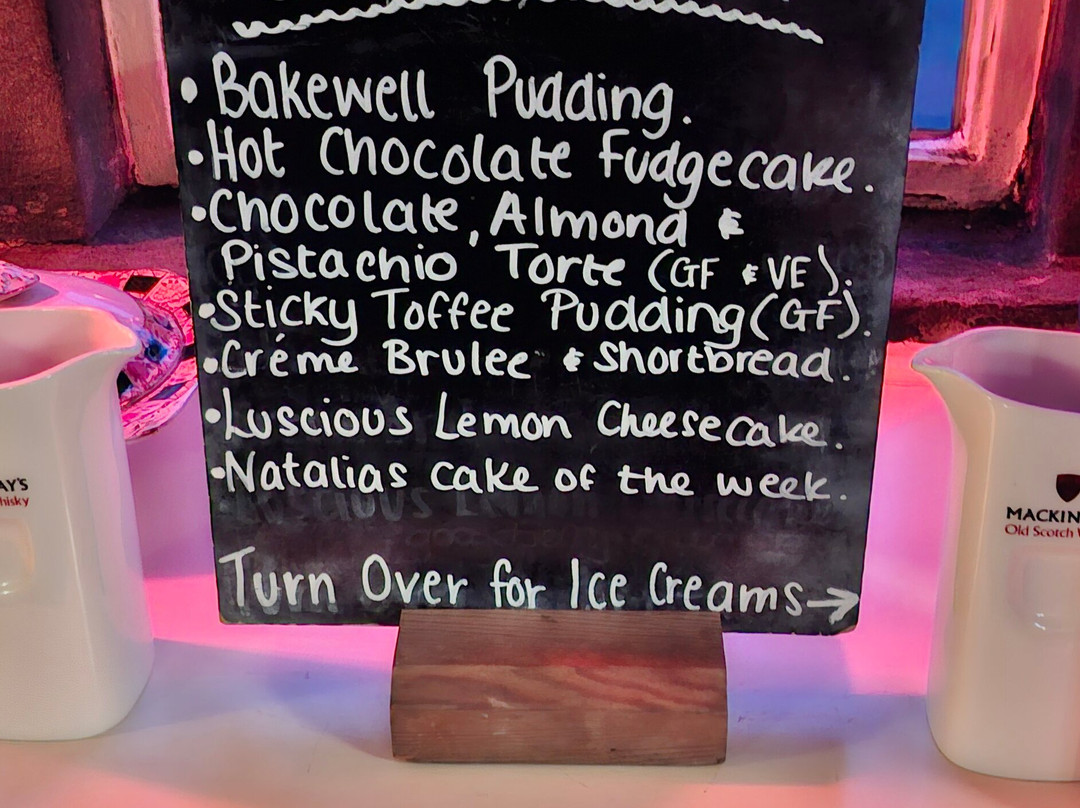 • Bakewell Pudding.
• Hot Chocolate fudgecake.
• Chocolate, Almond &
Pistachio Torte (GF & VE).
• Sticky Toffee Pudding (GF).
• Créme Brulee & Shortbread.
• Luscious Lemon Cheesecake.
• Natalias cake of the week.
Turn Over for Ice Creams→
AY'S
hisky
MACKIN
Old Scotch W